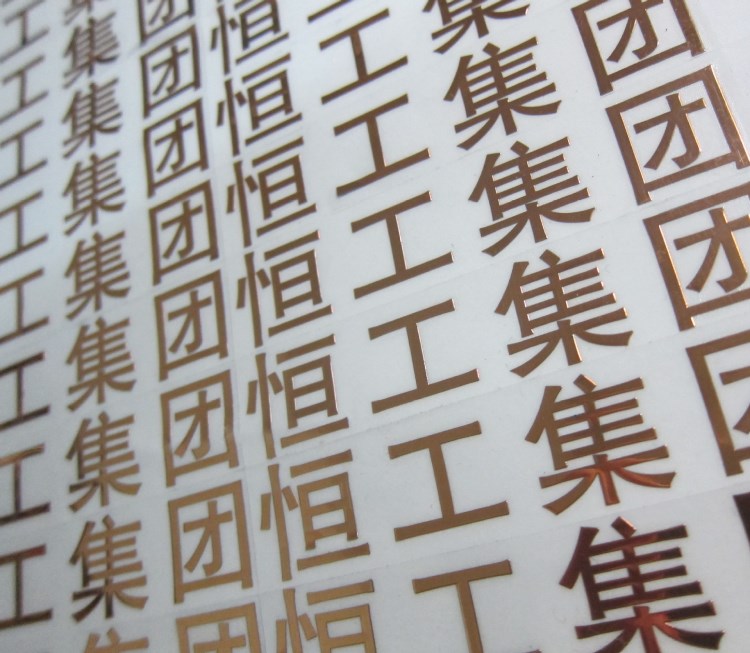 工集
工集团
工集团恒
工集团恒工集
工集团恒工集团
工集团恒工集团
工集团恒工集团
工集团恒工集团
集团恒工集